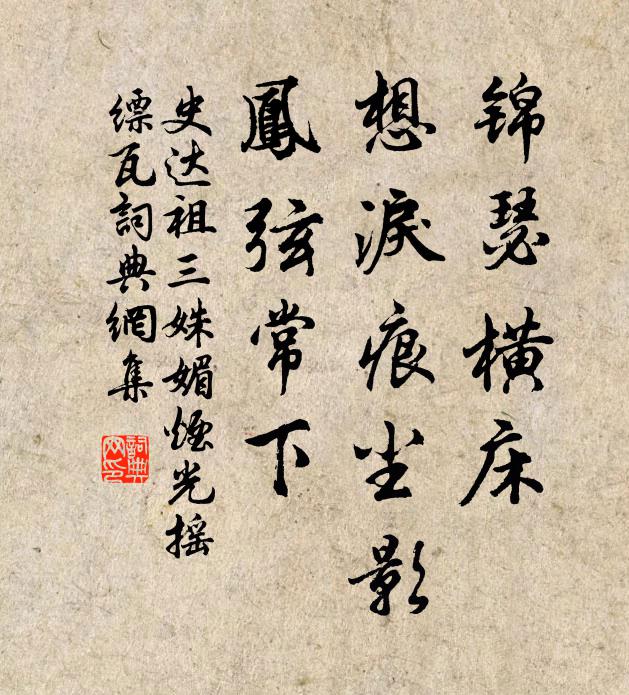 锦瑟横床
想淚痕尘影
鳳弦常下
史达祖三姝媚煙光摇
缥瓦詞典網集
詞典网印